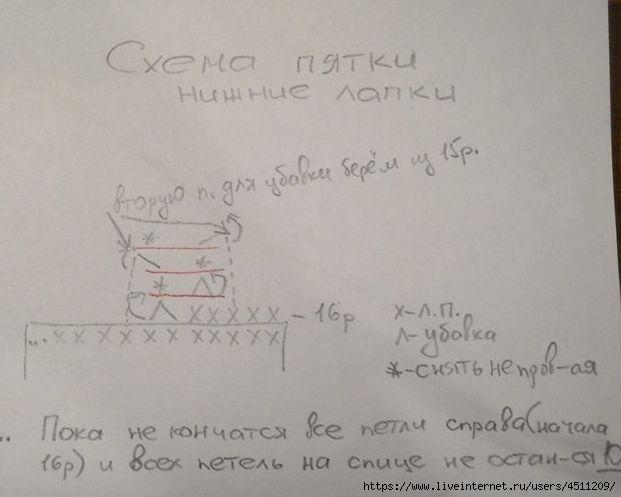 Схема пятки
нижние лапки
вторую п. для убавки берём из 15р.
* 
* 
*
Λ
Λ x x x x x - 16р
... x x x x x x x x x x x
x - л.п.
Λ - убавка
* - снять непров-ая
.. Пока не кончатся все петли справа (начала
16р) и всех петель на спице не остан-ся 10
https://www.liveinternet.ru/users/4511209/